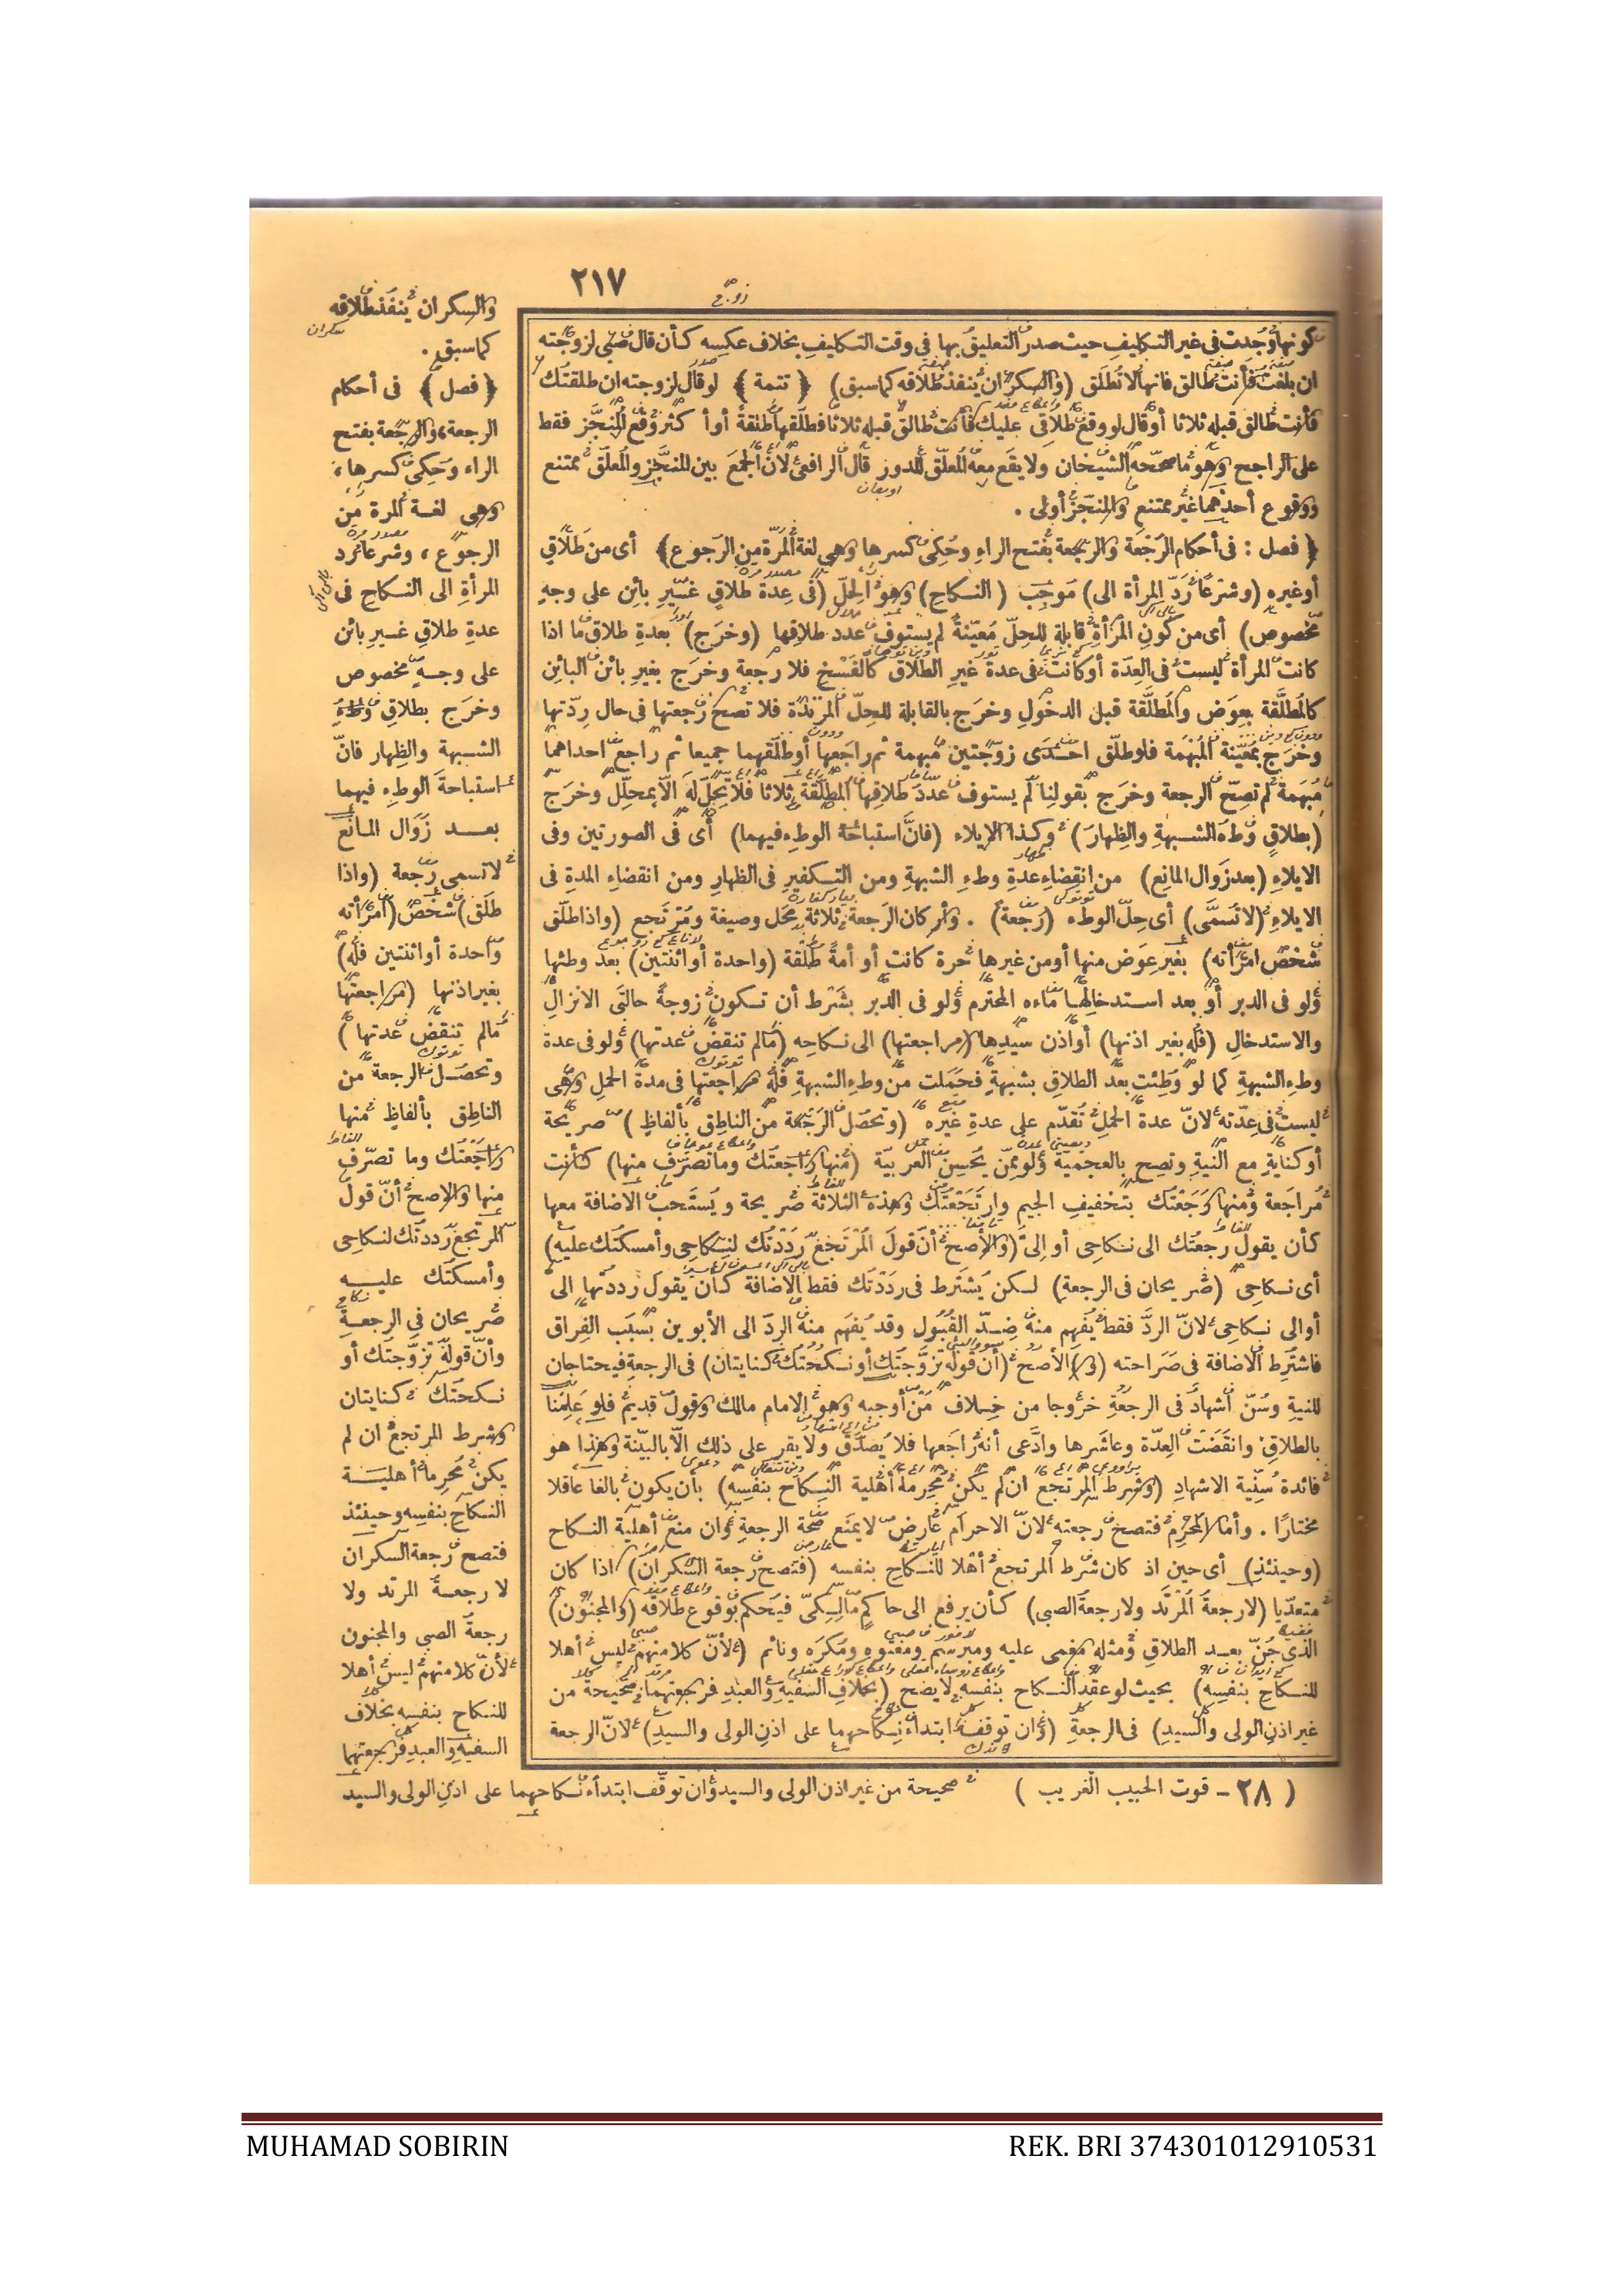 ٢١٧
كونها وجدت في غير التكليف حيث صدر التعليق بها في وقت التكليف بخلاف عكسه كأن قال صبي لزوجته
ان بلغت فأنت طالق فانها لا تطلق (والسكران ينفذ طلاقه كما سبق) ﴿ تتمة ﴾ لو قال لزوجته ان طلقتك
فأنت طالق قبله ثلاثا أو قال لو وقع طلاقي عليك فأنت طالق قبله ثلاثا فطلقها طلقة أو أكثر وقع المنجز فقط
على الراجح وهو ما صححه الشيخان ولا يقع معه المعلق للدور قال الرافعي لأن الجمع بين المنجز والمعلق ممتنع
ووقوع أحدهما غير ممتنع والمنجز أولى .
﴿ فصل : في أحكام الرجعة والرجعة بفتح الراء وحكي كسرها وهي لغة المرة من الرجوع ﴾ أي من طلاق
أو غيره (وشرعا رد المرأة الى) موجب (النكاح) وهو الحل (في عدة طلاق غير بائن على وجه
مخصوص) أي من كون المرأة قابلة للحل معينة لم يستوف عدد طلاقها (وخرج) بعدة طلاق ما اذا
كانت المرأة ليست في العدة أو كانت في عدة غير الطلاق كالفسخ فلا رجعة وخرج بغير بائن البائن
كالمطلقة بعوض والمطلقة قبل الدخول وخرج بالقابلة للحل المرتدة فلا تصح رجعتها في حال ردتها
وخرج بمعينة المبهمة فلو طلق احدى زوجتين مبهمة ثم راجعها أو طلقهما جميعا ثم راجع احداهما
مبهمة لم تصح الرجعة وخرج بقولنا لم يستوف عدد طلاقها المطلقة ثلاثا فلا تحل له الا بمحلل وخرج
(بطلاق وطء الشبهة والظهار) وكذا الايلاء (فان استباحة الوطء فيهما) أي في الصورتين وفي
الايلاء (بعد زوال المانع) من انقضاء عدة وطء الشبهة ومن التكفير في الظهار ومن انقضاء المدة في
الايلاء (لا تسمى) أي حل الوطء (رجعة) . وأركان الرجعة ثلاثة محل وصيغة ومرتجع (واذا طلق
شخص امرأته) بغير عوض منها أو من غيرها حرة كانت أو أمة طلقة (واحدة أو اثنتين) بعد وطئها
ولو في الدبر أو بعد استدخالها ماءه المحترم ولو في الدبر بشرط أن تكون زوجة حالتي الانزال
والاستدخال (فله بغير اذنها) أو اذن سيدها (مراجعتها) الى نكاحه (ما لم تنقض عدتها) ولو في عدة
وطء الشبهة كما لو وطئت بعد الطلاق بشبهة فحملت من وطء الشبهة فله مراجعتها في مدة الحمل وهي
ليست في عدته لان عدة الحمل تقدم على عدة غيره (وتحصل الرجعة من الناطق بألفاظ) صريحة
أو كناية مع النية وتصح بالعجمية ولو ممن يحسن العربية (منها راجعتك وما تصرف منها) كأنت
مراجعة ومنها رجعتك بتخفيف الجيم وارتجعتك وهذه الثلاثة صريحة ويستحب الاضافة معها
كأن يقول رجعتك الى نكاحي أو الي (والأصح أن قول المرتجع رددتك لنكاحي وأمسكتك عليه)
أي نكاحي (صريحان في الرجعة) لكن يشترط في رددتك فقط الاضافة كأن يقول رددتها الي
أو الى نكاحي لان الرد فقط يفهم منه ضد القبول وقد يفهم منه الرد الى الأبوين بسبب الفراق
فاشترط الاضافة في صراحته (و) الأصح (أن قوله تزوجتك أو نكحتك كنايتان) في الرجعة فيحتاجان
للنية وسن اشهاد في الرجعة خروجا من خلاف من أوجبه وهو الامام مالك وقول قديم فلو علمنا
بالطلاق وانقضت العدة وعاشرها وادعى أنه راجعها فلا يصدق ولا يقر على ذلك الا بالبينة وهذا هو
فائدة سنية الاشهاد (وشرط المرتجع ان لم يكن محرما أهلية النكاح بنفسه) بأن يكون بالغا عاقلا
مختارا . وأما المحرم فتصح رجعته لان الاحرام عارض لا يمنع صحة الرجعة وان منع أهلية النكاح
(وحينئذ) أي حين اذ كان شرط المرتجع أهلا للنكاح بنفسه (فتصح رجعة السكران) اذا كان
متعديا (لا رجعة المرتد ولا رجعة الصبي) كأن يرفع الى حاكم مالكي فيحكم بوقوع طلاقه (والمجنون)
الذي جن بعد الطلاق ومثله مغمى عليه ومبرسم ومعتوه ومكره ونائم (لأن كلا منهم ليس أهلا
للنكاح بنفسه) بحيث لو عقد النكاح بنفسه لا يصح (بخلاف السفيه والعبد فرجعتهما صحيحة من
غير اذن الولى والسيد) في الرجعة (وان توقف ابتداء نكاحهما على اذن الولى والسيد) لان الرجعة
والسكران ينفذ طلاقه
كما سبق .
﴿ فصل ﴾ في أحكام
الرجعة والرجعة بفتح
الراء وحكي كسرها
وهي لغة المرة من
الرجوع ، وشرعا رد
المرأة الى النكاح في
عدة طلاق غير بائن
على وجه مخصوص
وخرج بطلاق وطء
الشبهة والظهار فان
استباحة الوطء فيهما
بعد زوال المانع
لا تسمى رجعة (واذا
طلق) شخص (امرأته
واحدة أو اثنتين فله)
بغير اذنها (مراجعتها
ما لم تنقض عدتها)
وتحصل الرجعة من
الناطق بألفاظ منها
راجعتك وما تصرف
منها والاصح أن قول
المرتجع رددتك لنكاحي
وأمسكتك عليه
صريحان في الرجعة
وأن قوله تزوجتك أو
نكحتك كنايتان
وشرط المرتجع ان لم
يكن محرما أهلية
النكاح بنفسه وحينئذ
فتصح رجعة السكران
لا رجعة المرتد ولا
رجعة الصبي والمجنون
لأن كلا منهم ليس أهلا
للنكاح بنفسه بخلاف
السفيه والعبد فرجعتهما
صحيحة من غير اذن الولى والسيد وان توقف ابتداء نكاحهما على اذن الولى والسيد
( ٢٨ - قوت الحبيب الغريب )
MUHAMAD SOBIRIN
REK. BRI 374301012910531